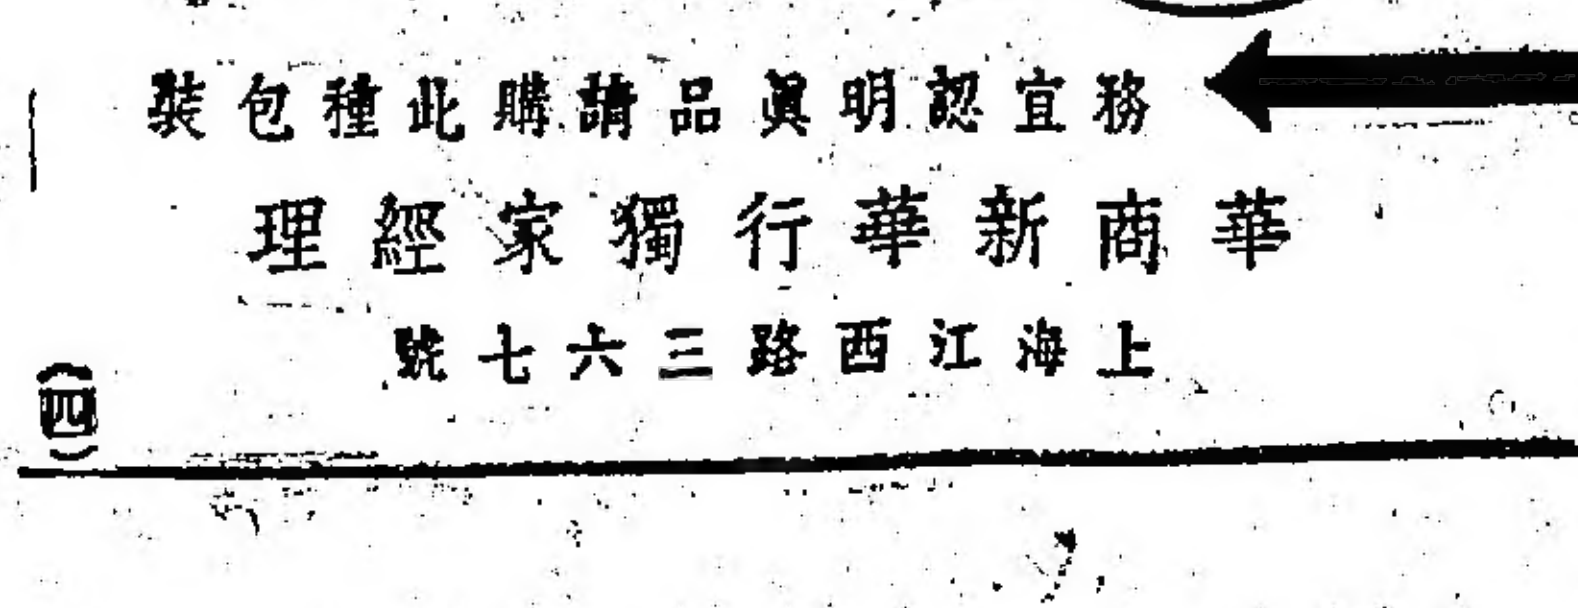 務宜認明眞品請購此種包裝
華商新華行獨家經理
上海江西路三六七號
(四)